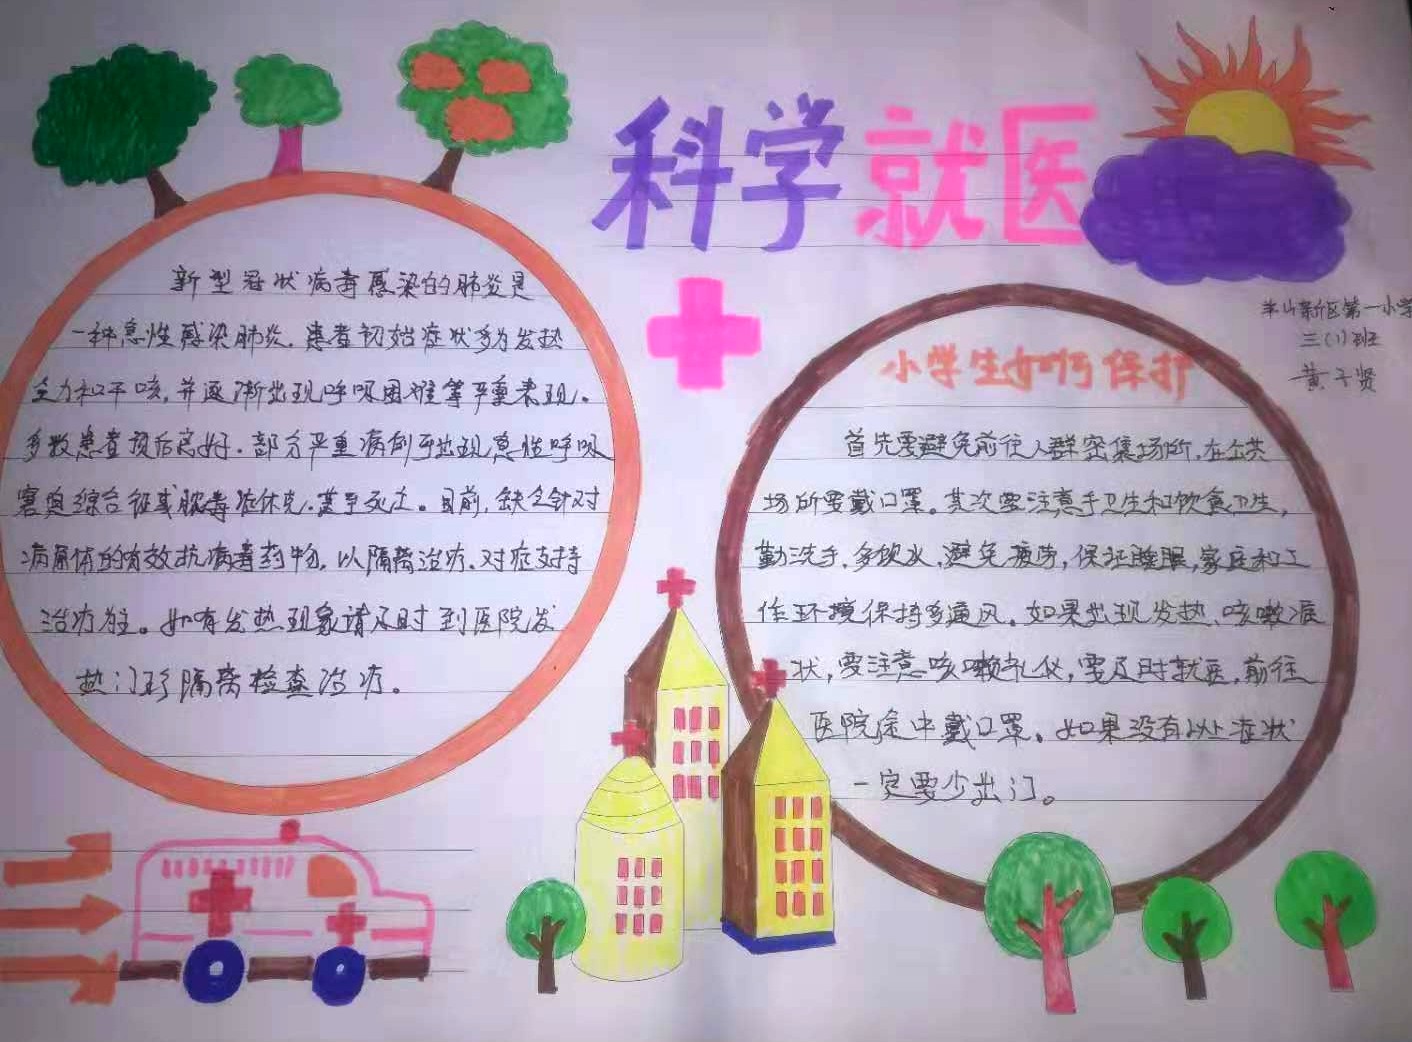 科学就医
新型冠状病毒感染的肺炎是
一种急性感染肺炎。患者初始症状多为发热
乏力和干咳,并逐渐出现呼吸困难等严重表现。
多数患者预后良好。部分严重病例可出现急性呼吸
窘迫综合征或脓毒症休克,甚至死亡。目前,缺乏针对
病原体的有效抗病毒药物,以隔离治疗、对症支持
治疗为主。如有发热现象请及时到医院发
热门诊隔离检查治疗。
半山新区第一小学
三(1)班
黄子贤
小学生如何保护
首先要避免前往人群密集场所,在公共
场所要戴口罩。其次要注意手卫生和饮食卫生,
勤洗手,多饮水,避免疲劳,保证睡眠,家庭和工
作环境保持多通风。如果出现发热、咳嗽症
状,要注意咳嗽礼仪,要及时就医,前往
医院途中戴口罩。如果没有以上症状
一定要少出门。